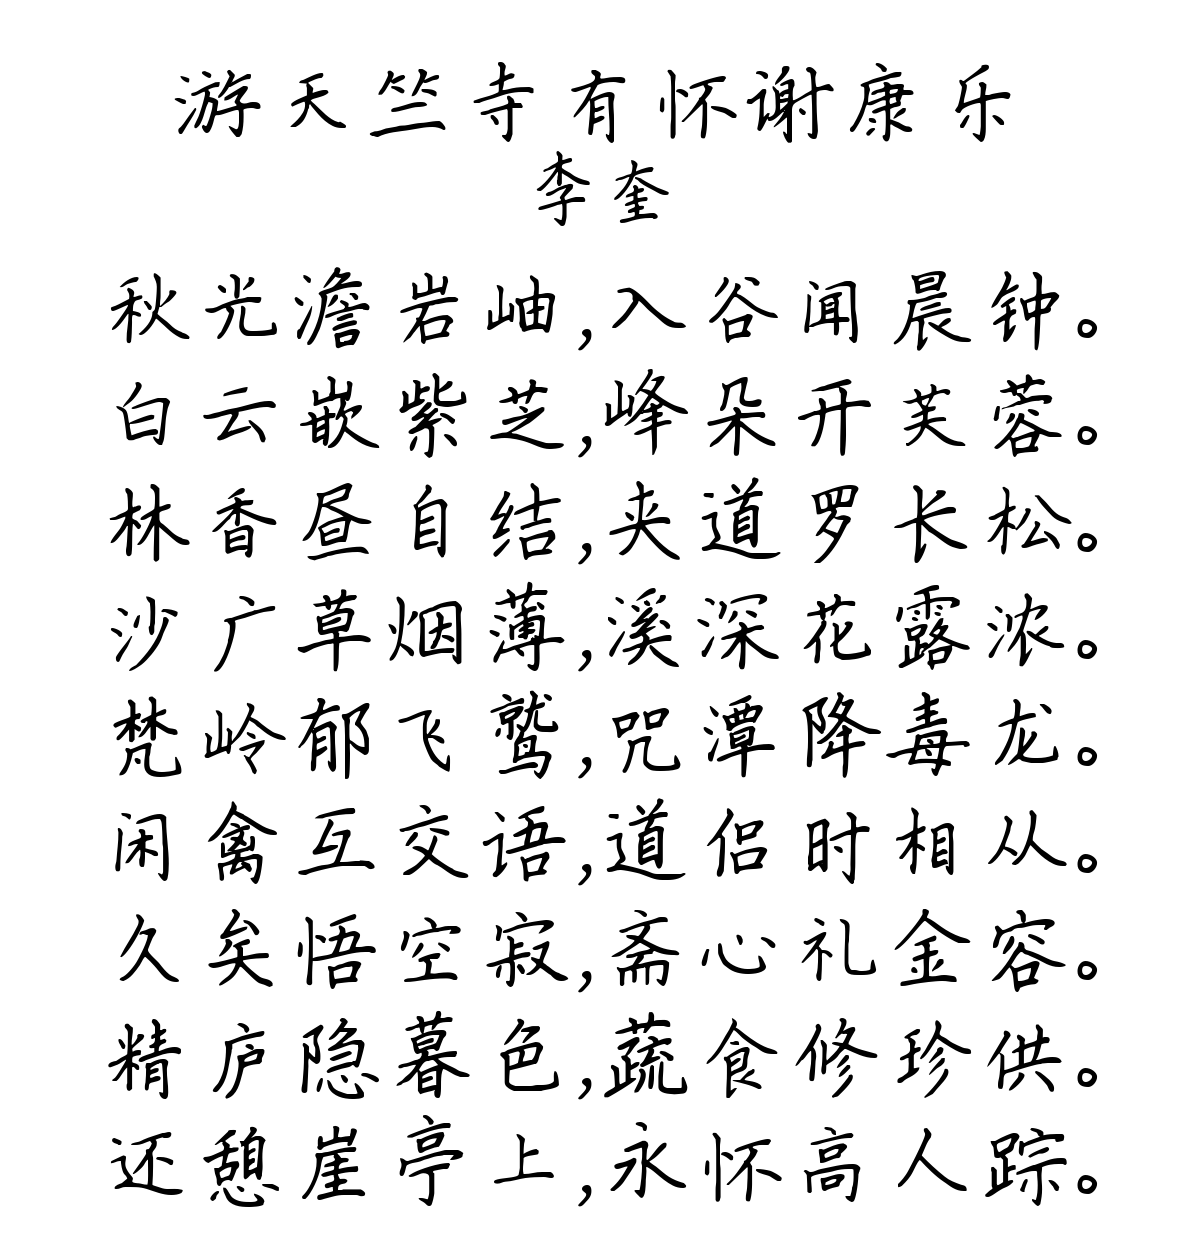 游天竺寺有怀谢康乐
李奎
秋光澹岩岫,入谷闻晨钟。
白云嵌紫芝,峰朵开芙蓉。
林香昼自结,夹道罗长松。
沙广草烟薄,溪深花露浓。
梵岭郁飞鹫,咒潭降毒龙。
闲禽互交语,道侣时相从。
久矣悟空寂,斋心礼金容。
精庐隐暮色,蔬食修珍供。
还憩崖亭上,永怀高人踪。